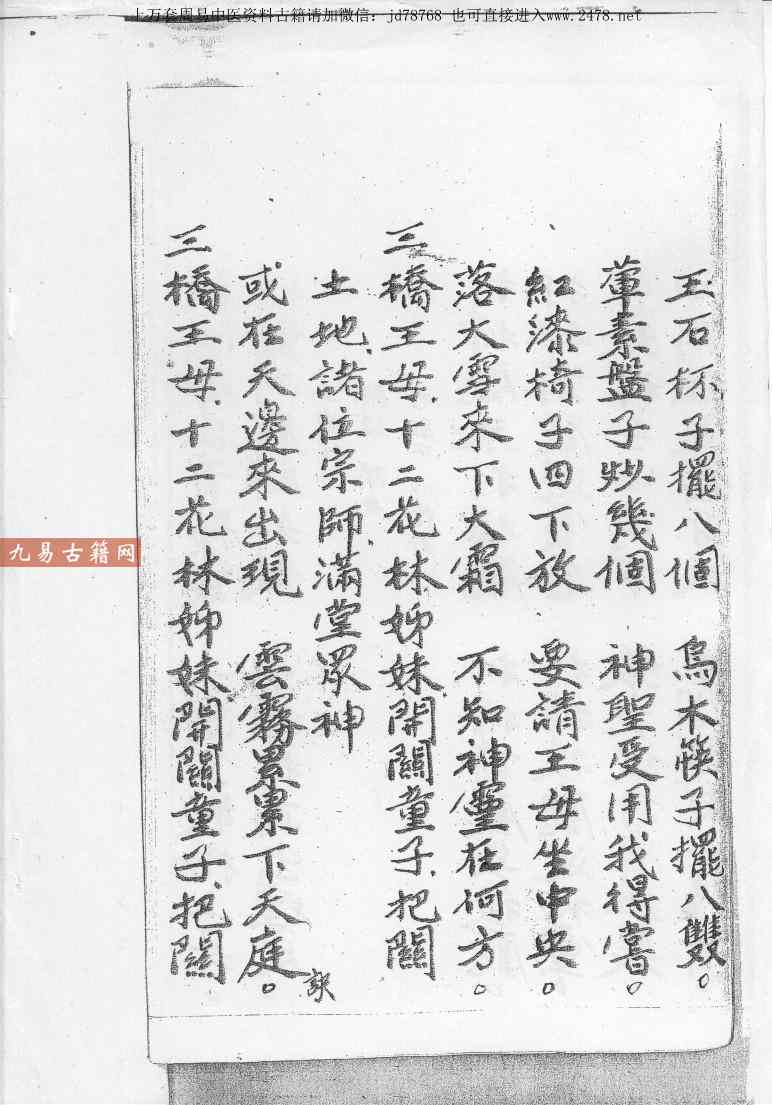 十万套周易中医资料古籍请加微信：jd78768 也可直接进入www.2478.net
玉石杯子擺八個　烏木筷子擺八雙。
葷素盤子炒幾個　神聖受用我得嘗。
紅漆椅子四下放　要請王母坐中央。
落大雪來下大霜　不知神靈在何方。
三橋王母、十二花林姊妹、開關童子、把關
土地、諸位宗師、滿堂眾神　訣
或在天邊來出現　雲霧累累下天庭。
三橋王母、十二花林姊妹、開關童子、把關
九易古籍网